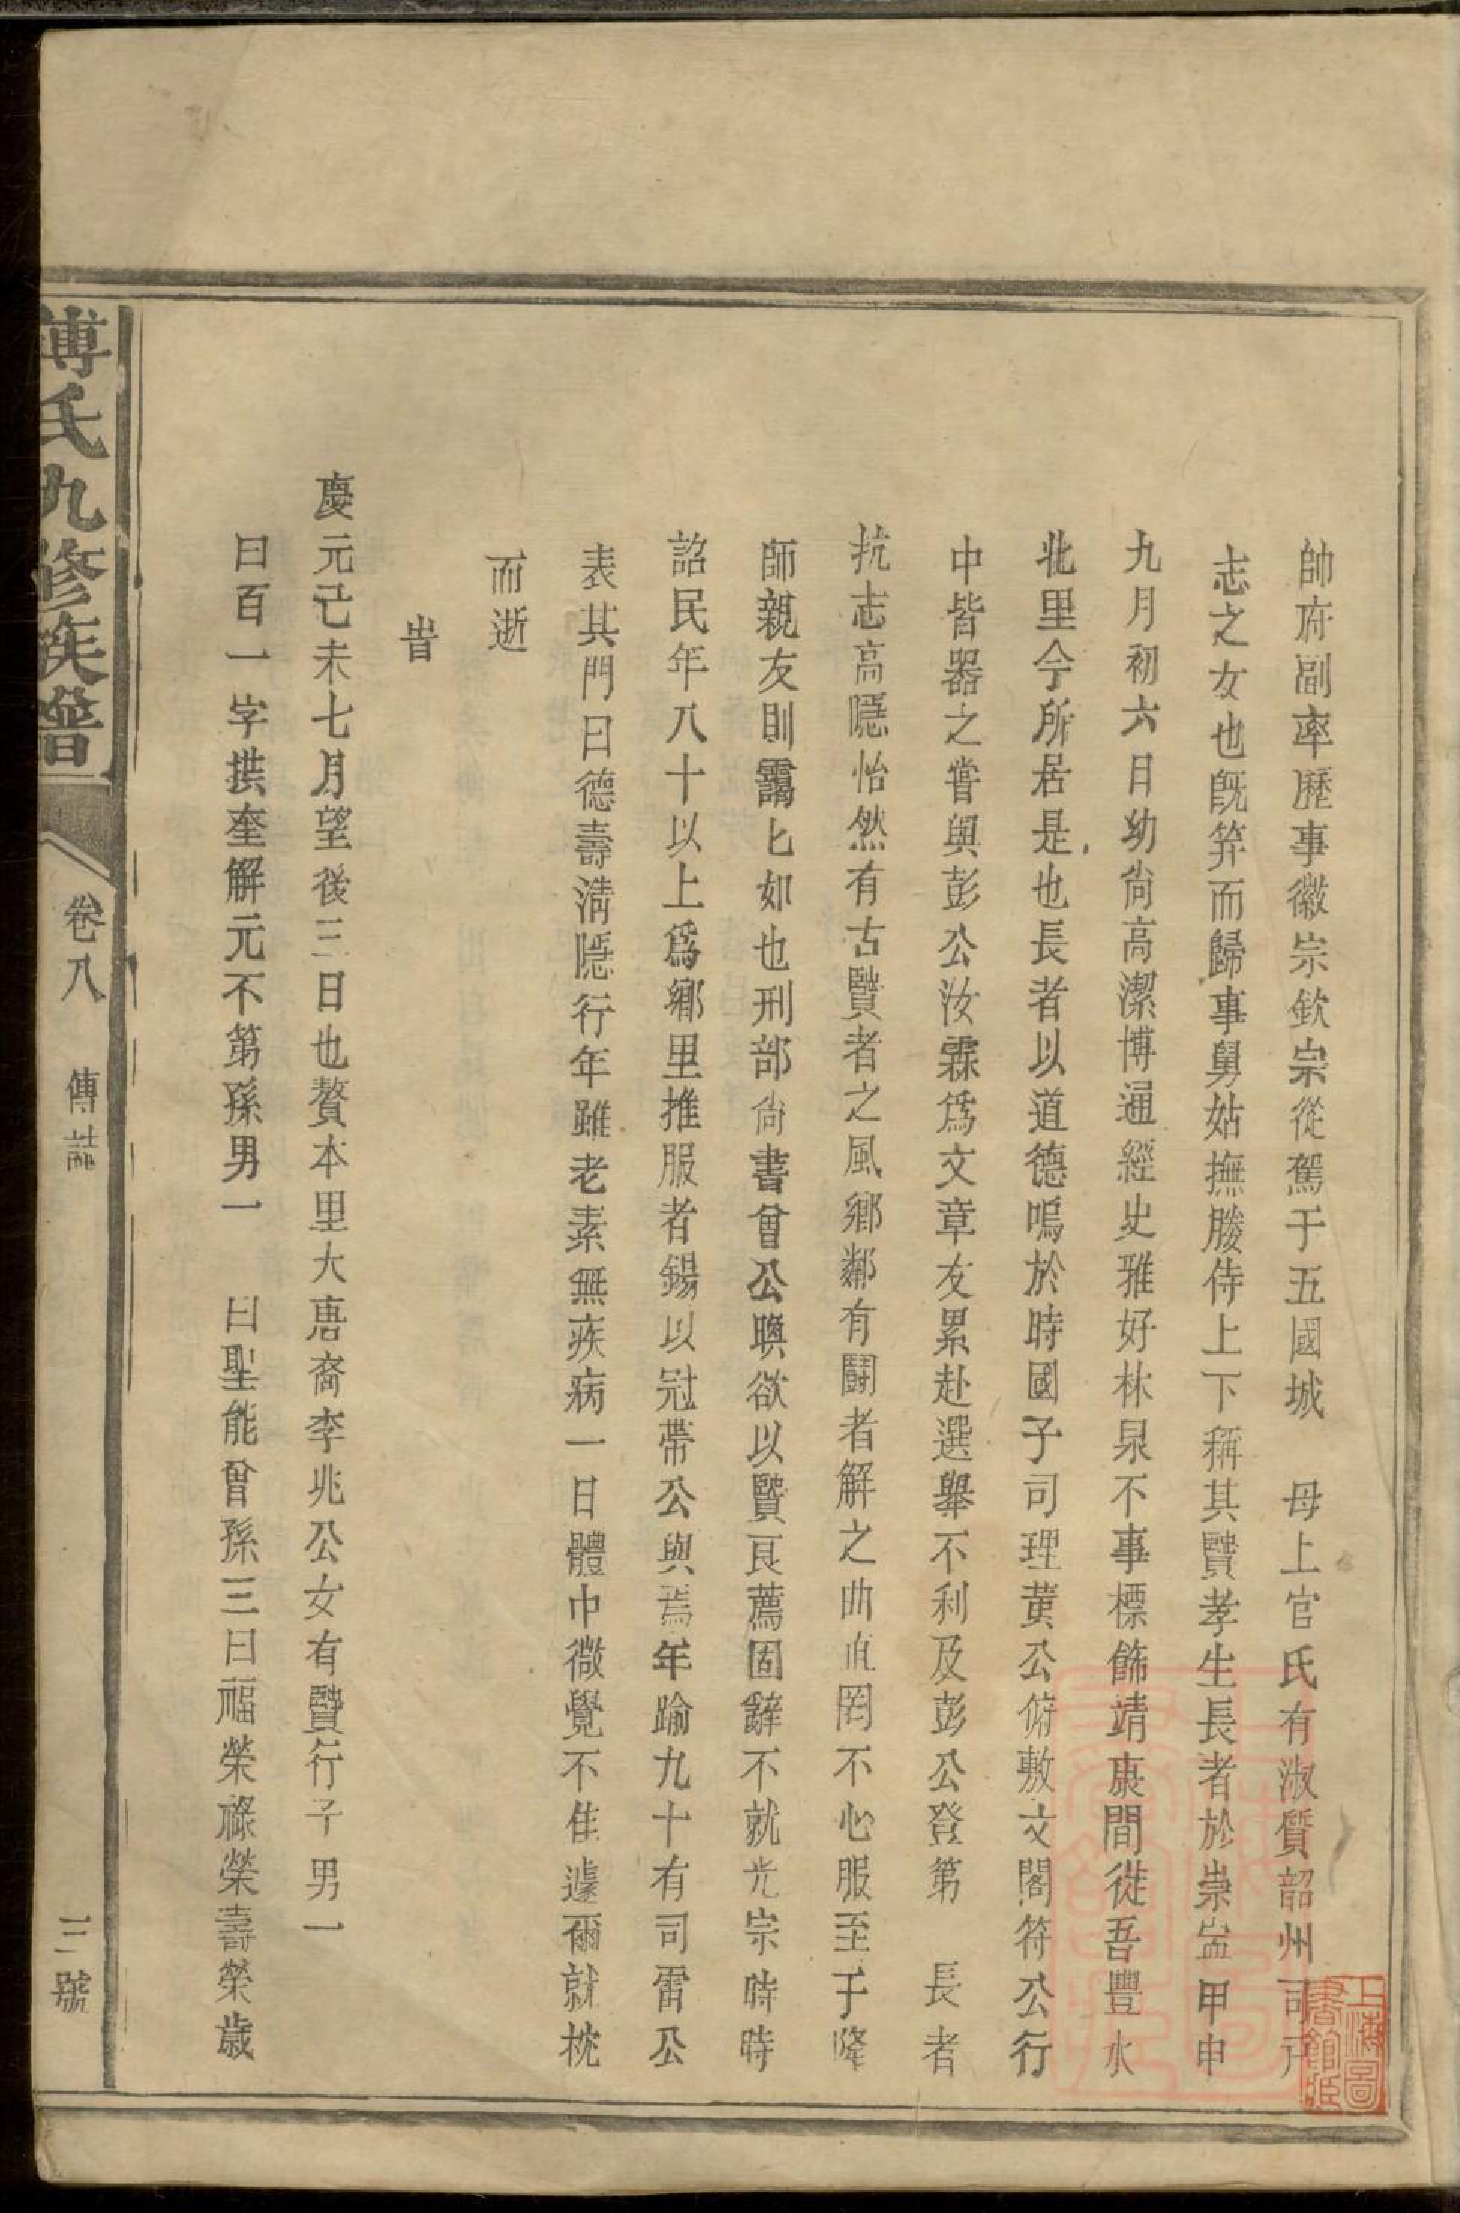 帥府副率歷事徽宗欽宗從駕于五國城　母上官氏有淑質韶州司戶
志之女也旣笄而歸事舅姑撫媵侍上下稱其賢孝生長者於崇寍甲申
九月初六日幼尙高潔博通經史雅好林泉不事標飾靖康間徙吾豐水
北里今所居是也長者以道德鳴於時國子司理黄公俯敷文閣符公行
中皆器之嘗與彭公汝霖爲文章友累赴選舉不利及彭公登第　長者
抗志高隱怡然有古賢者之風鄉鄰有鬪者解之曲直罔不心服至于降
師親友則靄匕如也刑部尙書曾公㬇欲以賢良薦固辭不就光宗時時
詔民年八十以上爲鄉里推服者錫以冠帶公與焉年踰九十有司雷公
表其門曰德壽淸隱行年雖老素無疾病一日體中微覺不佳遽爾就枕
而逝
旹
慶元己未七月望後三日也贅本里大唐裔李兆公女有賢行子男一
曰百一字拱奎解元不第孫男一　曰聖能曾孫三曰福榮祿榮壽榮歲
傅氏九修族譜
卷八　傳誌
三號
上海圖書館藏